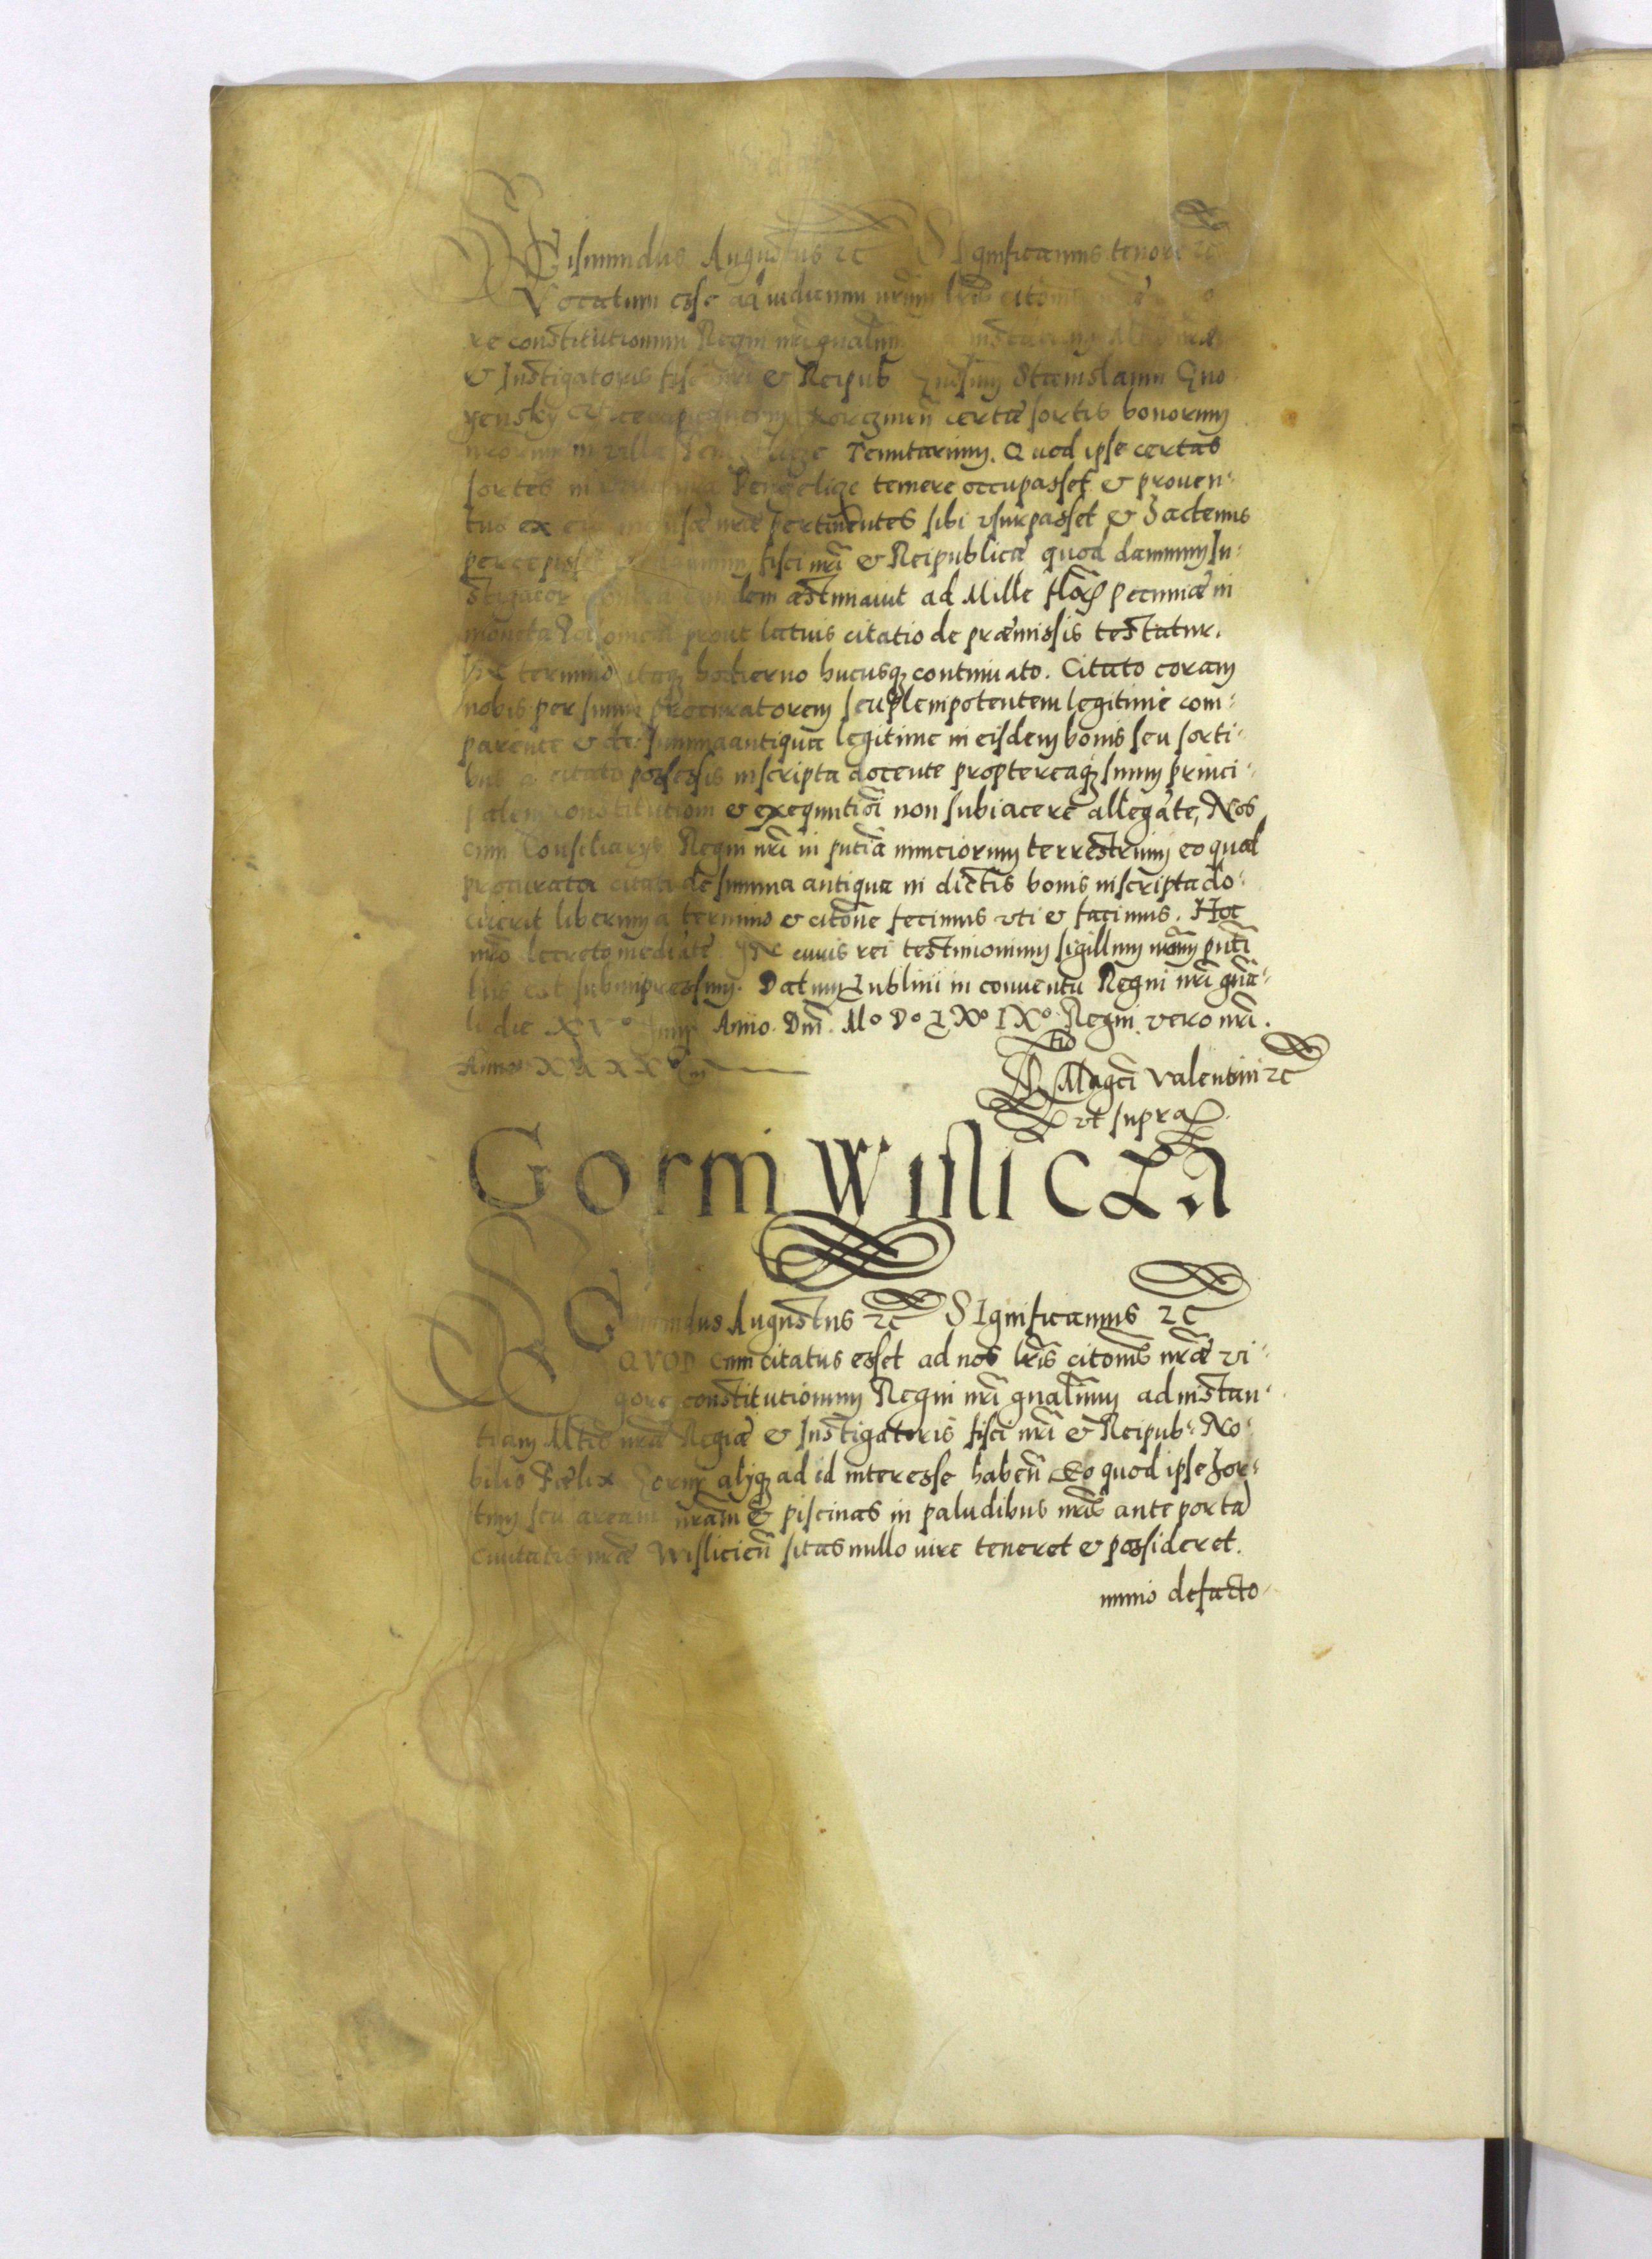 Sigismundus Augustus ꝛc Significamus tenore ꝛc
Vocatum esse ad iudicium nrum lris citonis
re constitutionum Regni nri gnalium
& Instigatoris fisci nri & Reipub Stanislaum Gno
yensky certæ sortis bonorum
nrorum in villa Tenutarium. Quod ipse certas
sortes in temere occupasset & prouen-
tus ex nræ pertinentes sibi vsurpasset & hactenus
percepisset fisci nri & Reipublicæ quod damnum In-
stigator contra eundem æstimauit ad Mille flor pecuniæ in
moneta prout latius citatio de præmissis testatur.
In termino itaq hodierno hucusq continuato. Citato coram
nobis per suum procuratorem seu plenipotentem legitime com-
parente & de summa antiqua legitime in eisdem bonis seu sorti-
bus a citato possessis inscripta docente proptereaq suum princi-
palem constitutioni & exequutioi non subiacere allegate, Nos
cum Consiliarys Regni nri in pntia nunciorum terrestrium eo quod
procurator citati de summa antiqua in dictis bonis inscripta do-
cuerit liberum a termino & citone fecimus vti & facimus. Hoc
nro decreto mediate. In cuius rei testimonium sigillum nrum pnti
bus est subimpressum. Datum Lublini in conuentu Regni nri gna-
li die XVº Anno Dni. Mº Dº LXº IXº Regni vero nri.
Anno
Rtio Magci Valentini ꝛc
vt supra
Gorni WisliczA
Sigismundus Augustus ꝛc SIgnificamus ꝛc
QVOD cum citatus esset ad nos lris citonis nræ vi-
gore constitutionum Regni nri gnalium ad instan-
tiam Mtis nræ Regiæ & Instigatoris fisci nri & Reipub: No-
bilis Fælix alysq ad id interesse haben Eo quod ipse hor-
tum seu aream nram & piscinas in paludibus nris ante porta
ciuitatis nræ Wislicien sitas nullo iure teneret & possideret.
immo defacto